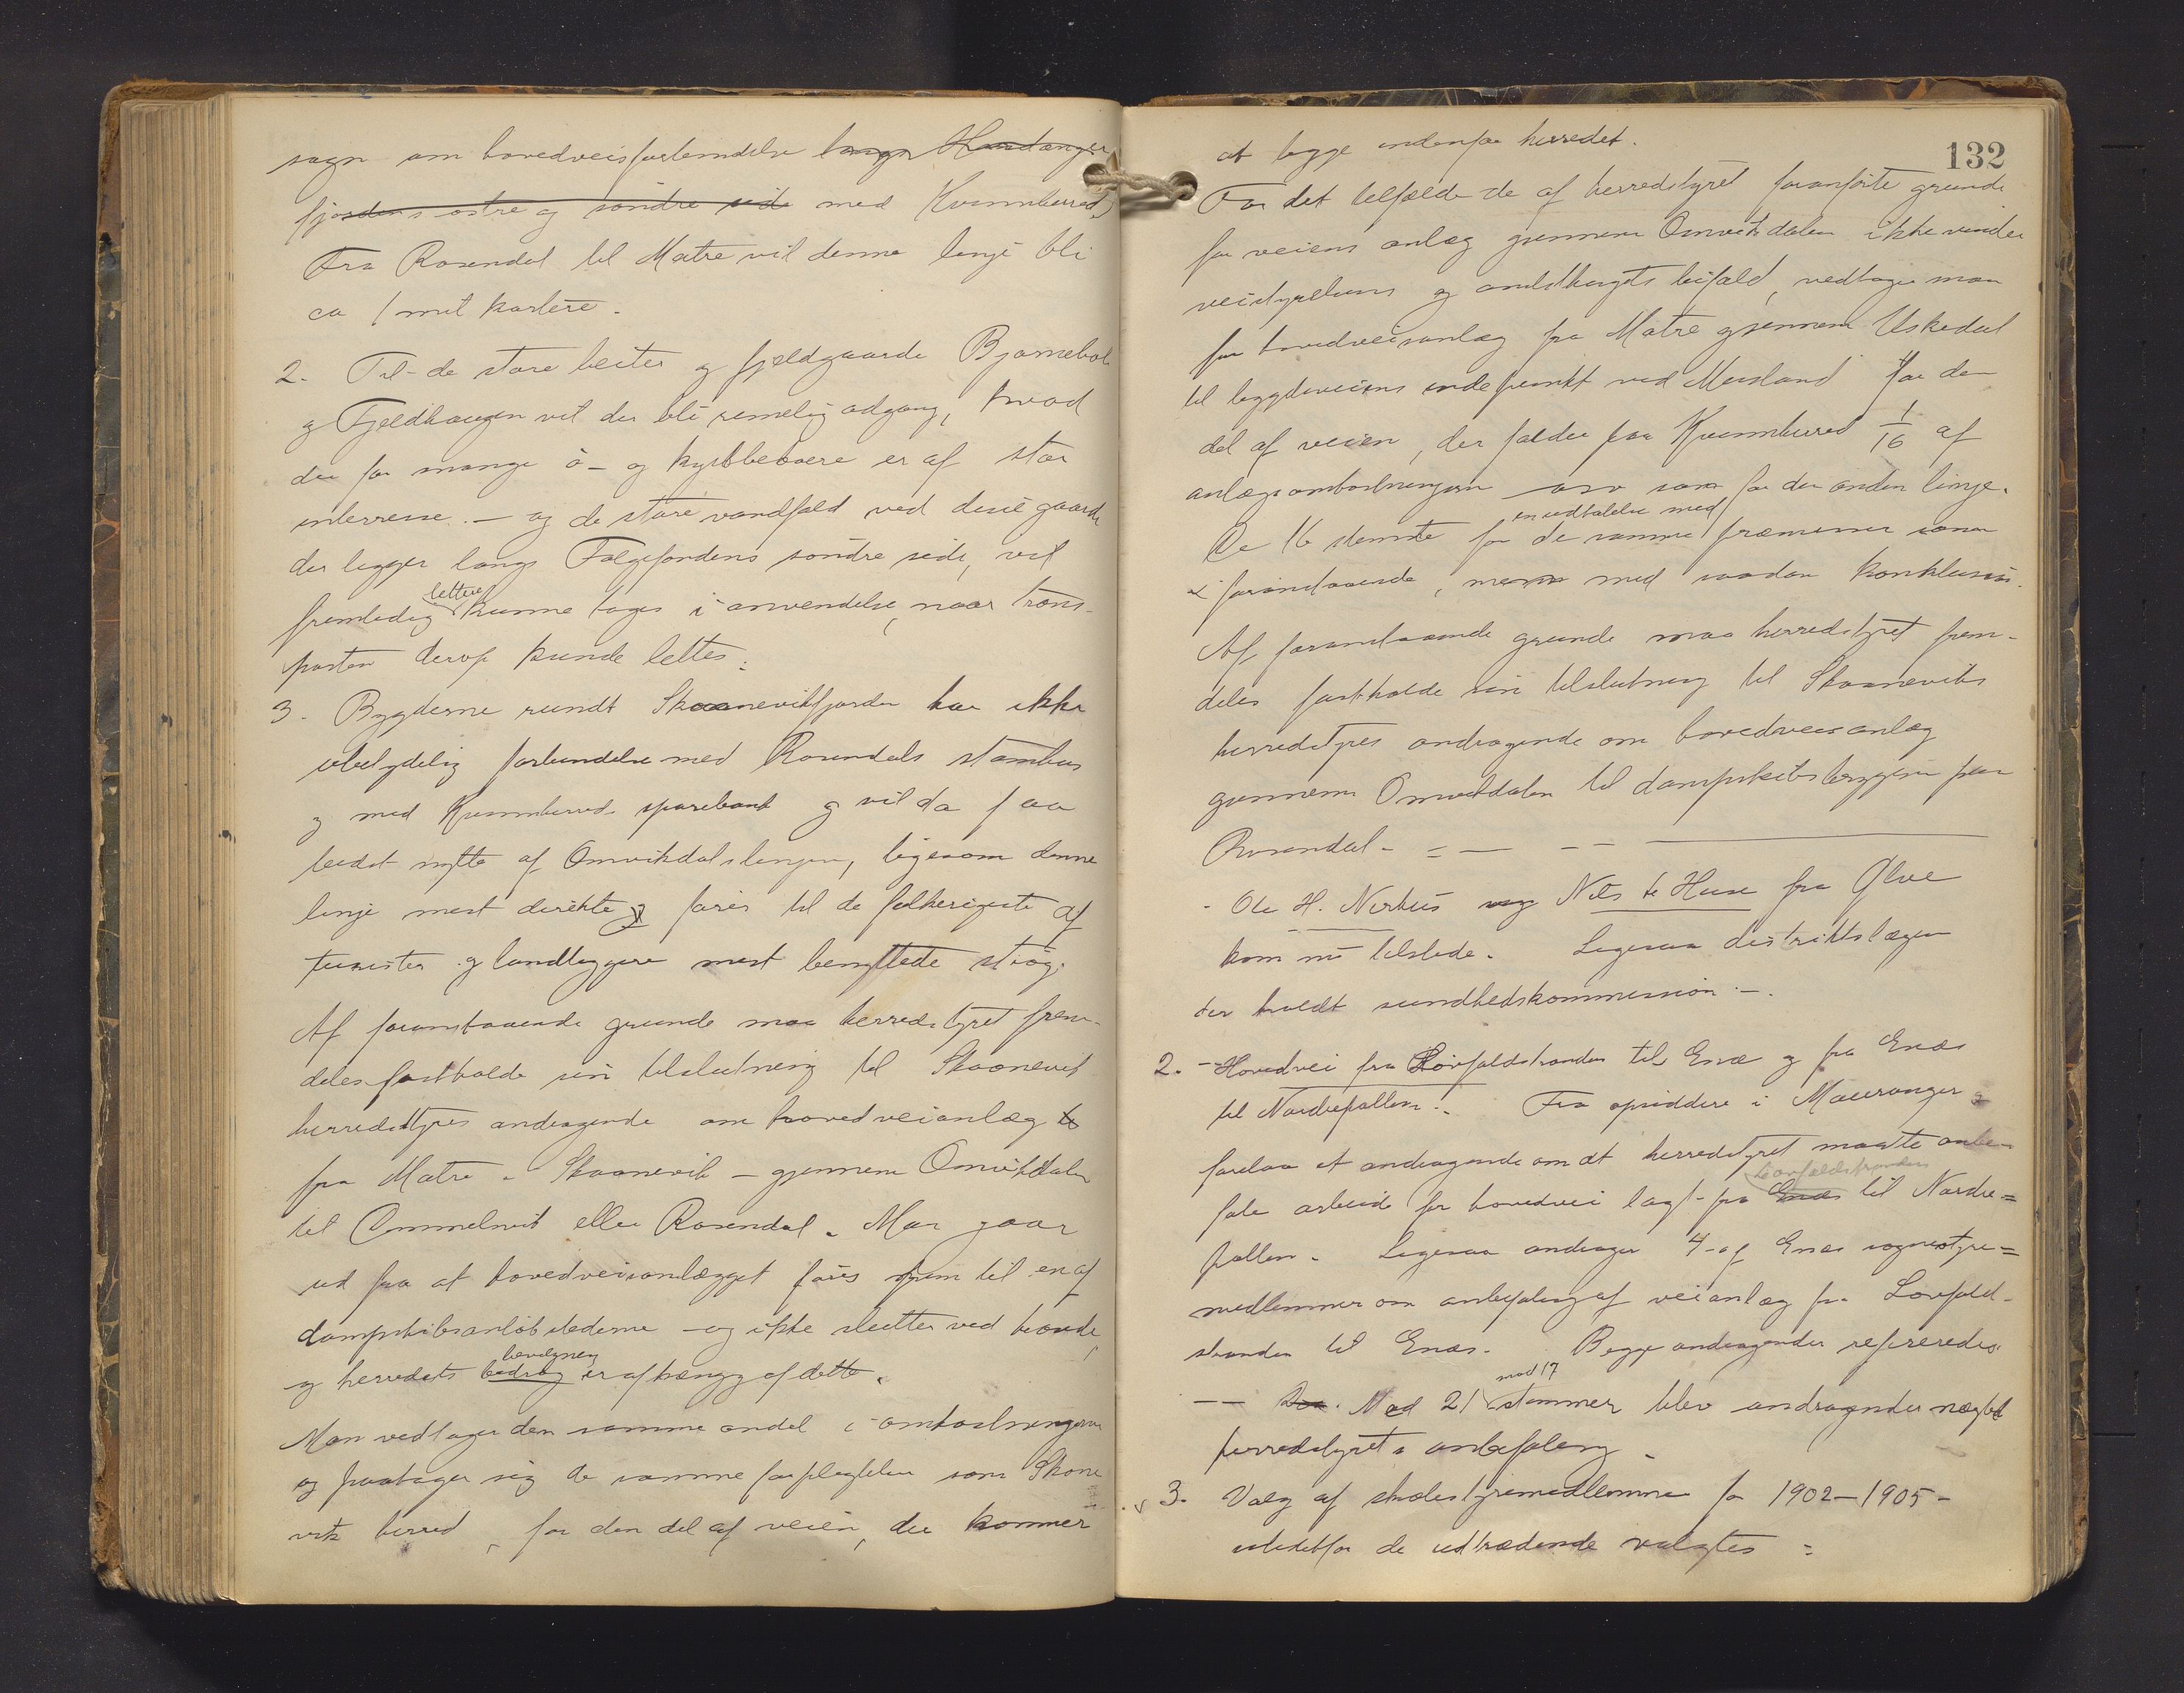 sogn om hovedveisforbindelse langs Hardanger
fjordens østre og søndre side med Kvinnherred
Fra Rosendal til Matre vil denne linje bli
ca 1 mil kortere.
2. Til de store beiter og fjeldgaarde Bjørnebøle
og Fjeldhaugen vil der bli rimelig adgang, hvad
der for mange ø- og kystbeboere er af stor
interresse. — og de store vandfald ved disse gaarde
der ligger langs Folgefondens søndre side, vil
lettere
fremtidig kunne tages i anvendelse, naar trans-
porten derop kunde lettes.
3. Bygderne rundt Skaanevikfjorden har ikke
ubetydelig forbindelse med Rosendals stambus
og med Kvinnherreds sparebank og vil da faa
bedst nytte af Omvikdalslinjen, ligesom denne
linje mest direkte føres til de folkerigeste af
turister og landliggere mest benyttede strøg.
Af foranstaaende grunde maa herredstyret frem-
deles fastholde sin tilslutning til Skaanevik
herredstyres andragende om hovedveianlæg
fra Matre - Skaanevik - gjennem Omvikdalen
til Ømmelvik eller Rosendal. Man gaar
ud fra at hovedveisanlægget føres frem til en af
dampskibsanløbsstederne - og ikke slutter ved
bevilgning
og herredets bidrag er afhængig af dette.
Man vedtager den samme andel i omkostningerne
og paatager sig de samme forpligtelser som Skone
vik herred, for den del af veien, der kommer
132
at ligge indenfor herredet.
For det tilfælde de af herredstyret foranførte grunde
for veiens anlæg gjennem Omvikdalen ikke vinder
veistyrelsens og amtsthingets bifald, vedtager man
for hovedveisanlæg fra Matre gjennem Uskedal
til bygdeveiens endepunkt ved Musland for den
del af veien, der falder paa Kvinnherred 1/16 af
anlægsomkostningerne osv som for den anden linje.
en udtalelse med
De 16 stemte for de samme præmisser som
i foranstaaende, men med saadan konklusion.
Af foranstaaende grunde maa herredstyret frem-
deles fastholde sin tilslutning til Skaaneviks
herredstyres andragende om hovedveisanlæg
gjennem Omvikdalen til dampskibsbryggen paa
Rosendal - = — — —
- Ole H. Nerhus og Nils te Huse fra Ølve
kom nu tilstede. Ligesaa distriktslægen
der holdt sundhedskommission —.
2. - Hovedvei fra Løvfaldstranden til Enæs og fra Enæs
til Nordrepollen. Fra opsiddere i Mauranger
forelaa et andragende om at herredstyret maatte anbe-
Løvfaldstranden
fale arbeide for hovedvei lagt fra Enæs til Nordre=
pollen. Ligesaa andrager 4 af Enæs sognestyre=
medlemmer om anbefaling af veianlæg fra Løvfald-
stranden til Enæs. Begge andragender refereredes.
mod 17
— Med 21 stemmer blev andragendet nægtet
herredstyrets anbefaling.
3. Valg af skolestyremedlemmer for 1902—1905 -
istedetfor de udtrædende valgtes :